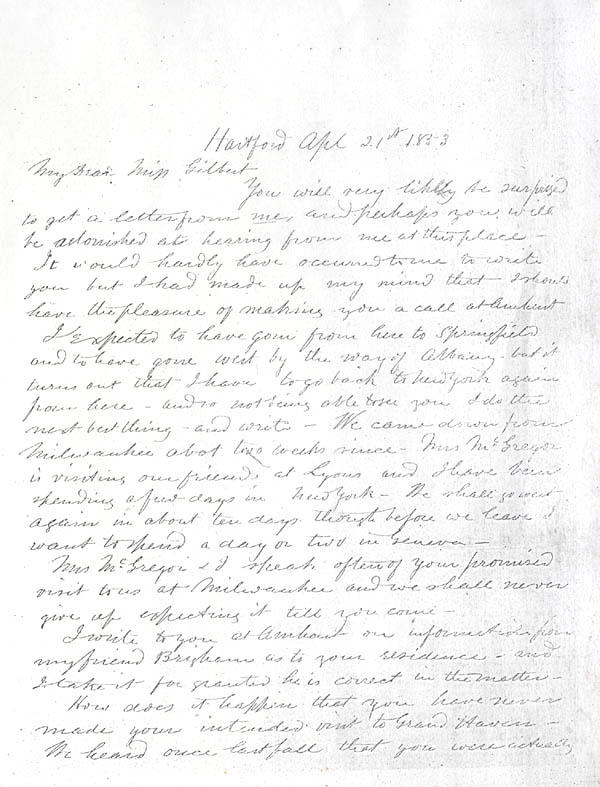 Hartford Apl 21st 1853
My Dear Miss Gilbert
You will very likely be surprized
to get a letter from me, and perhaps you will
be astonished at hearing from me at this place -
It would hardly have occurred to me to write
you but I had made up my mind that I should
have the pleasure of making you a call at Amherst
I expected to have gone from here to Springfield
and to have gone west by the way of Albany - but it
turns out that I have to go back to New York again
from here - and so not being able to see you I do the
next best thing - and write - We came down from
Milwaukee abot two weeks since - Mrs McGregor
is visiting our friends at Lyons and I have been
spending a few days in New York - We shall go west
again in about ten days though before we leave I
want to spend a day or two in Geneva -
Mrs McGregor & I speak often of your promised
visit to us at Milwaukee and we shall never
give up expecting it till you come -
I write to you at Amherst on information from
my friend Brigham as to your residence - and
I take it for granted he is correct in the matter -
How does it happen that you have never
made your intended visit to Grand Haven -
We heard once last fall that you were actually